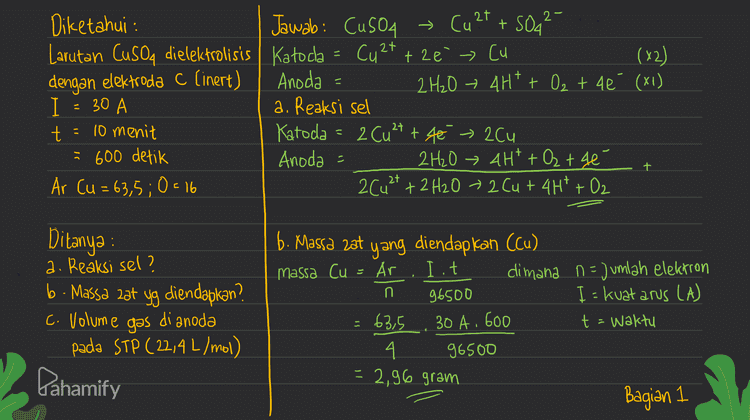 Diketahui :
Larutan CuSO₄ dielektrolisis
dengan elektroda C (inert)
I = 30 A
t = 10 menit
= 600 detik
Ar Cu = 63,5 ; O = 16
Ditanya :
a. Reaksi sel ?
b. Massa zat yg diendapkan?
c. Volume gas di anoda
pada STP (22,4 L/mol)
Pahamify
Jawab : CuSO₄ → Cu²⁺ + SO₄²⁻
Katoda = Cu²⁺ + 2e⁻ → Cu (×2)
Anoda = 2H₂O → 4H⁺ + O₂ + 4e⁻ (×1)
a. Reaksi sel
Katoda = 2Cu²⁺ + 4e⁻ → 2Cu
Anoda = 2H₂O → 4H⁺ + O₂ + 4e⁻ +
2Cu²⁺ + 2H₂O → 2Cu + 4H⁺ + O₂
b. Massa zat yang diendapkan (Cu)
massa Cu = Ar . I . t dimana n = jumlah elektron
n 96500 I = kuat arus (A)
= 63,5 . 30 A . 600 t = waktu
4 96500
= 2,96 gram
Bagian 1